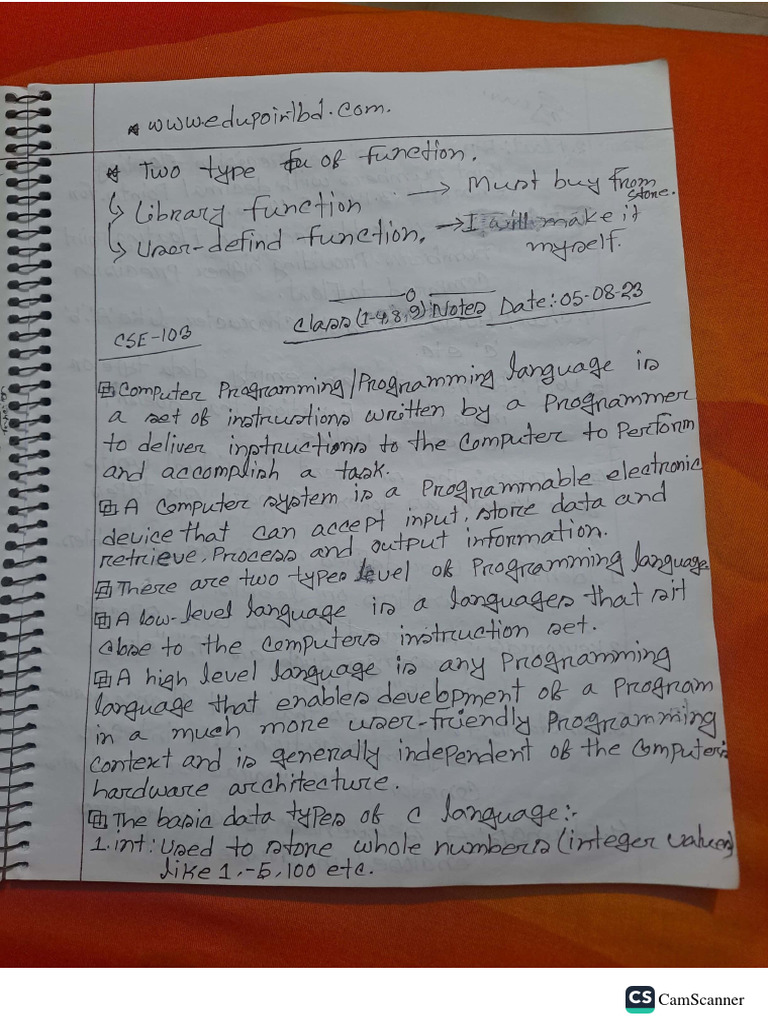 * www.edupointbd.com.
* Two type of function.
↳ Library function → Must buy from store.
↳ User-defind function. → I will make it myself.
CSE-103
Class (1-4,8,9) Notes Date: 05-08-23
Computer Programming/Programming language is
a set of instructions written by a Programmer
to deliver instructions to the Computer to Perform
and accomplish a task.
A Computer system is a Programmable electronic
device that can accept input, store data and
retrieve, Process and output information.
There are two types level of Programming language
A low-level language is a languages that sit
close to the computers instruction set.
A high level language is any Programming
language that enables development of a Program
in a much more user-friendly Programming
context and is generally independent of the Computer's
hardware architecture.
The basic data types of C language:-
1. int: Used to store whole numbers (integer values)
like 1, -5, 100 etc.
CS CamScanner